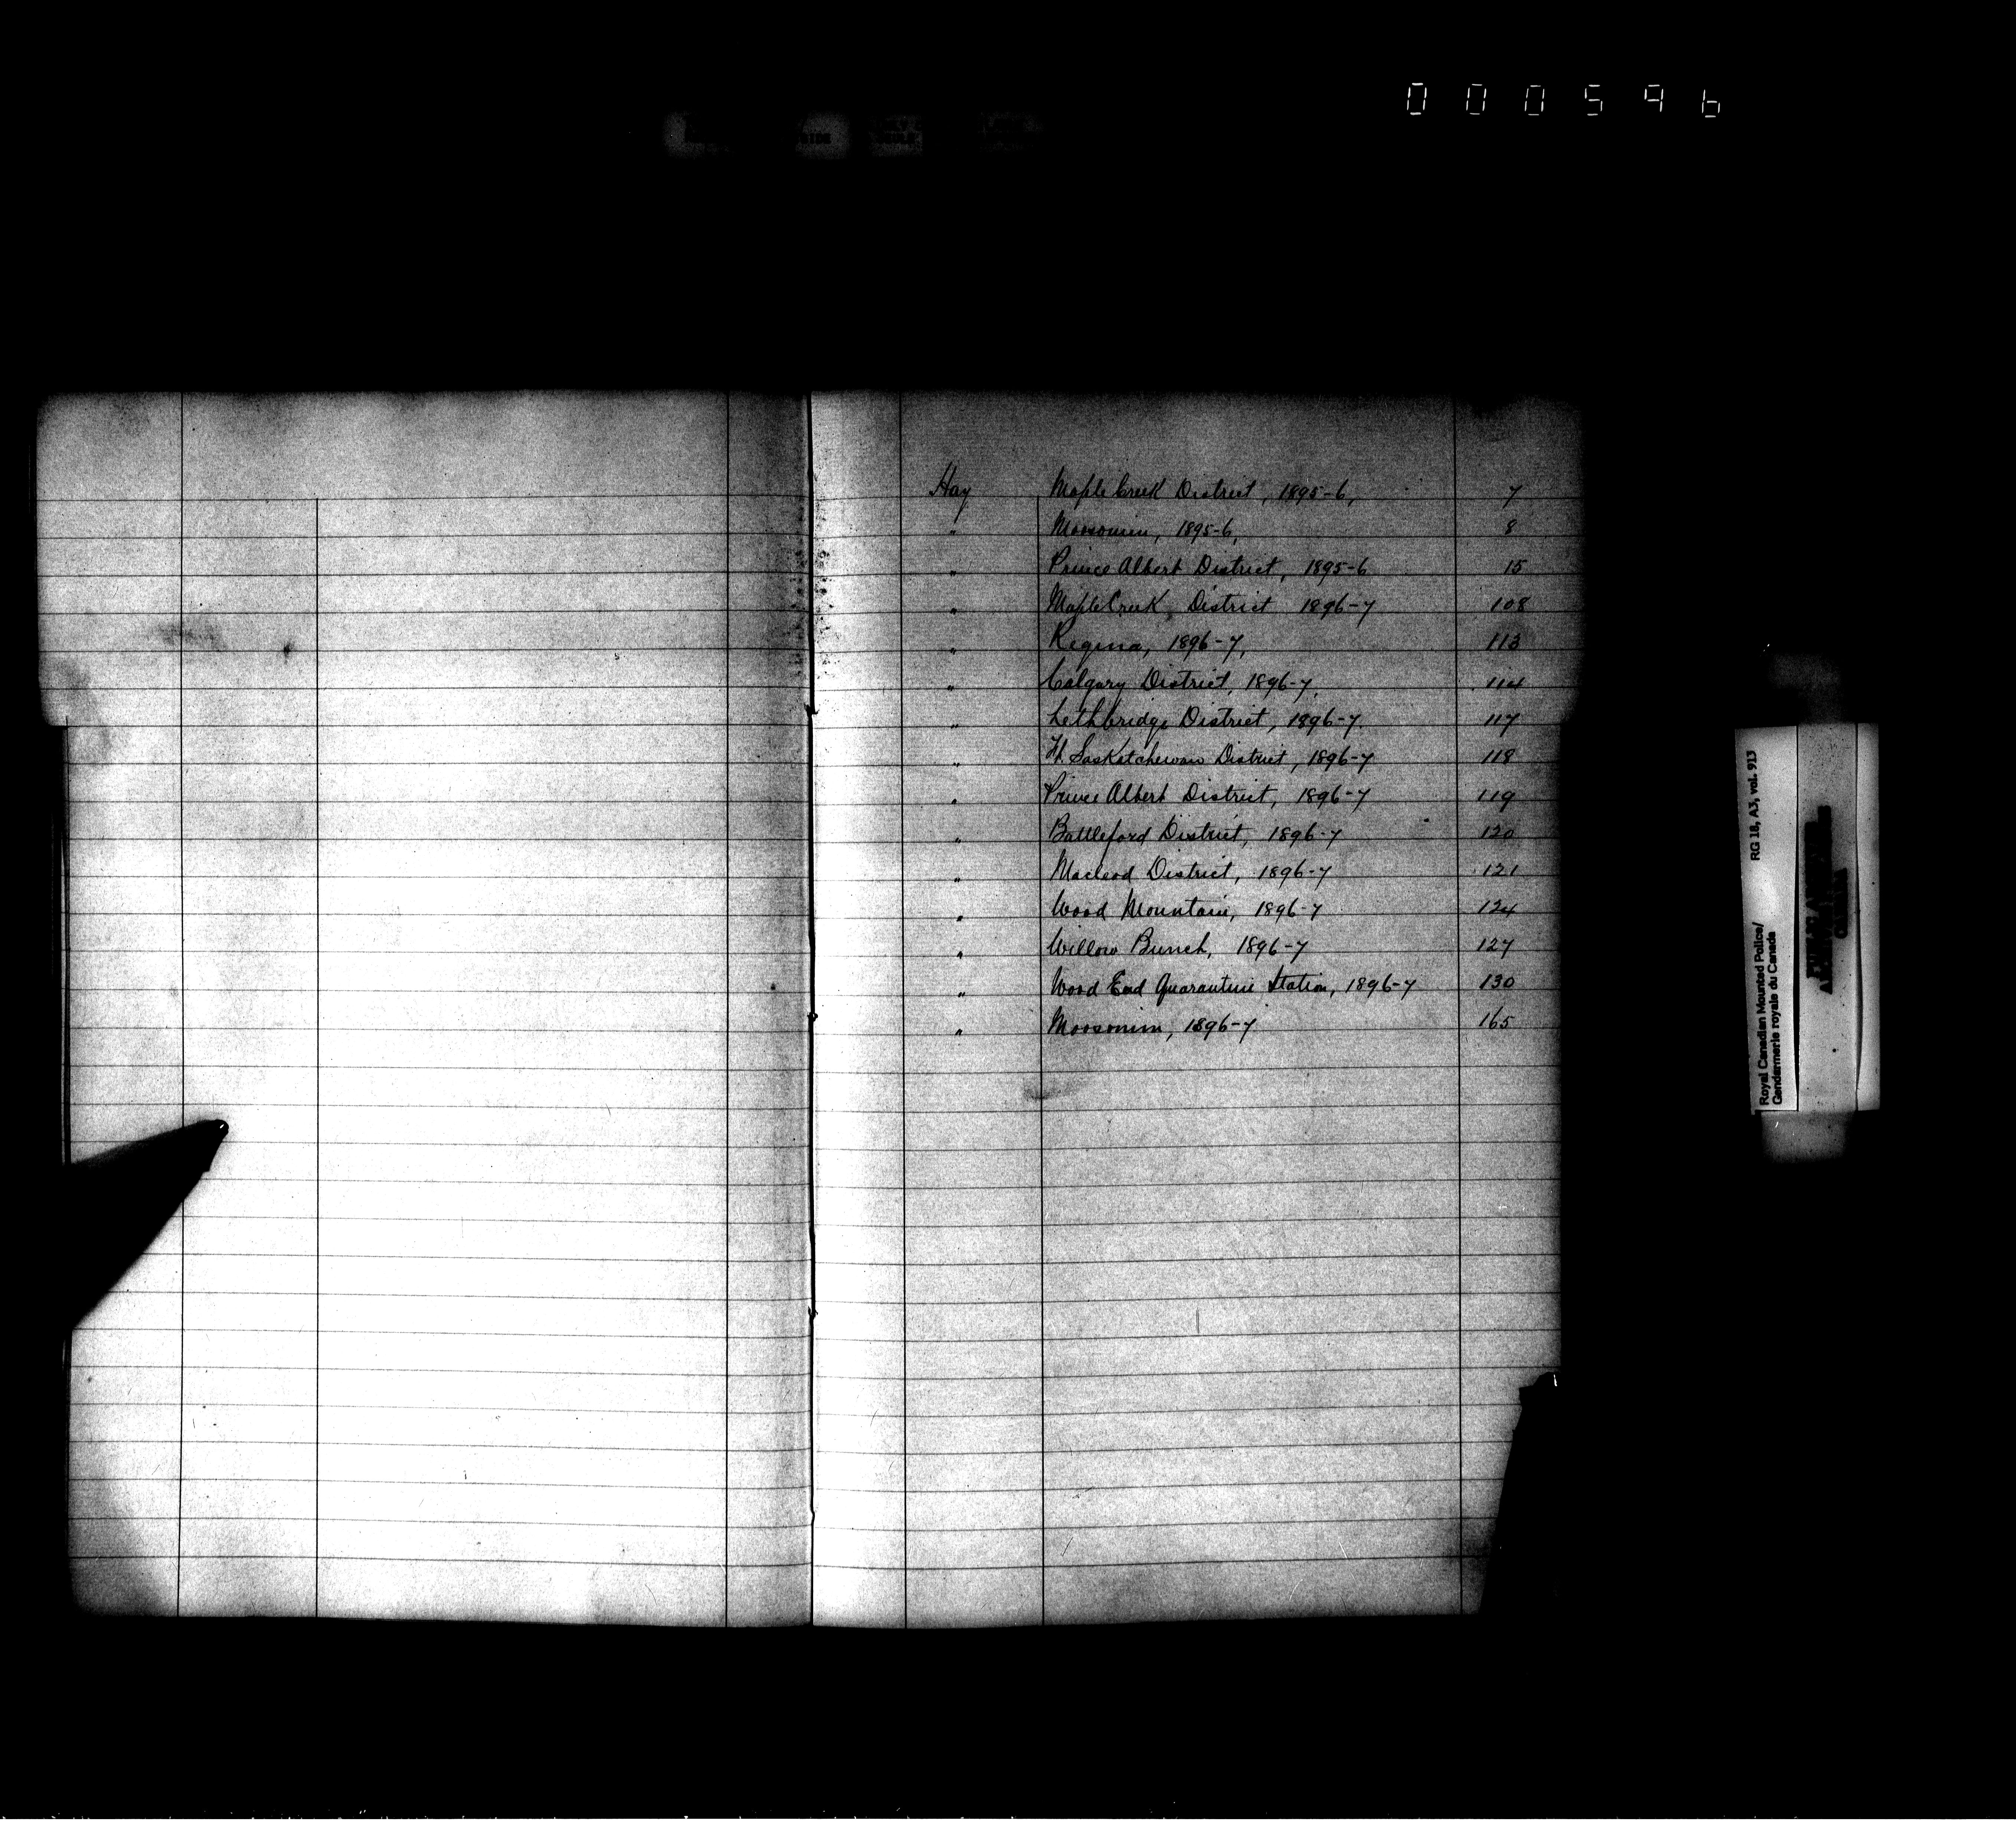 000596
Hay Maple Creek District, 1895-6, 7
" Moosomin, 1895-6, 8
" Prince Albert District, 1895-6 15
" Maple Creek District 1896-7 108
" Regina, 1896-7, 113
" Calgary District, 1896-7, 114
" Lethbridge District, 1896-7. 117
" Ft. Saskatchewan District, 1896-7 118
" Prince Albert District, 1896-7 119
" Battleford District, 1896-7 120
" Macleod District, 1896-7 121
" Wood Mountain, 1896-7 124
" Willow Bunch, 1896-7 127
" Wood End Quarantine Station, 1896-7 130
" Moosomin, 1896-7 165
Royal Canadian Mounted Police/ RG 18, A3, vol. 913
Gendarmerie royale du Canada